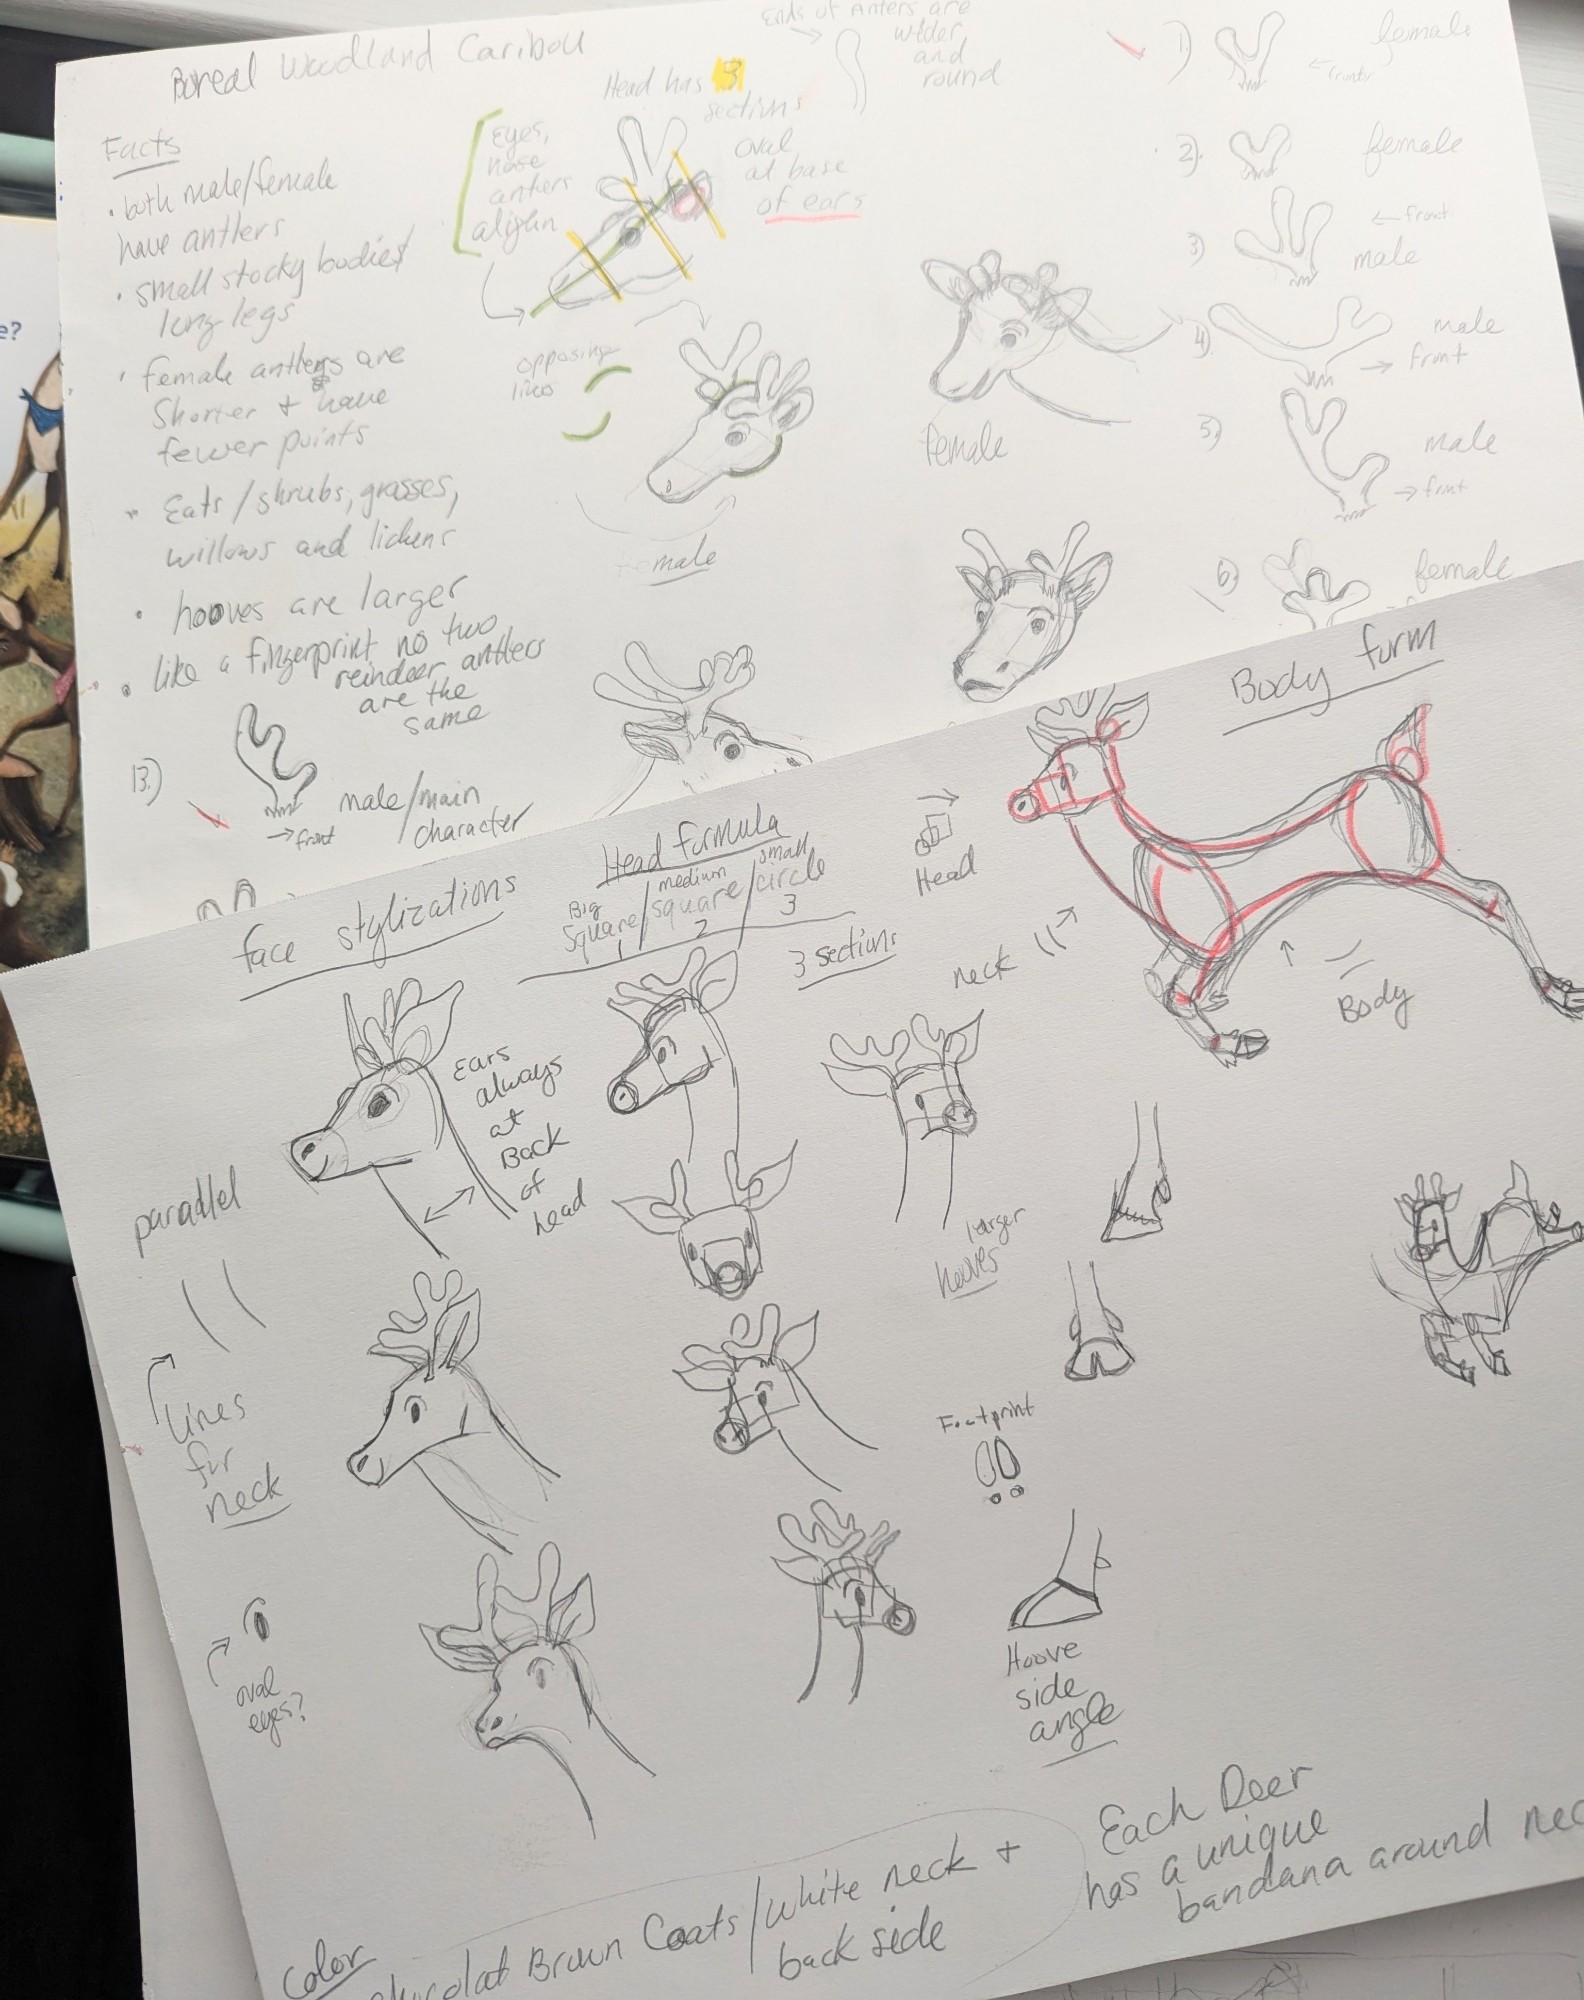 e?
Boreal Woodland Caribou
Facts
• both male/female
have antlers
• small stocky bodies/
long legs
• female antlers are
Shorter + have
fewer points
• Eats/shrubs, grasses,
willows and lichens
• hooves are larger
• like a fingerprint no two
reindeer antlers
are the
same
13.)
male/main
character
→ front
Head has 3
sections
Eyes,
nose
anters
align
oval
at base
of ears
Ends of Anters are
wider
and
round
opposing
lines
male
Female
1)
female
← front
2).
female
3)
← front
male
4).
male
→ front
5)
male
→ front
6)
female
face stylizations
Head formula
Big
Square/
1
medium
square/
2
small
circle
3
3 sections
Ears
always
at
Back
of
head
paradlel
lines
for
neck
oval
eyes?
Body form
Head
neck
Body
larger
hooves
Footprint
Hoove
side
angle
Color
Brown Coats/white neck +
back side
Each Deer
has a unique
bandana around nec